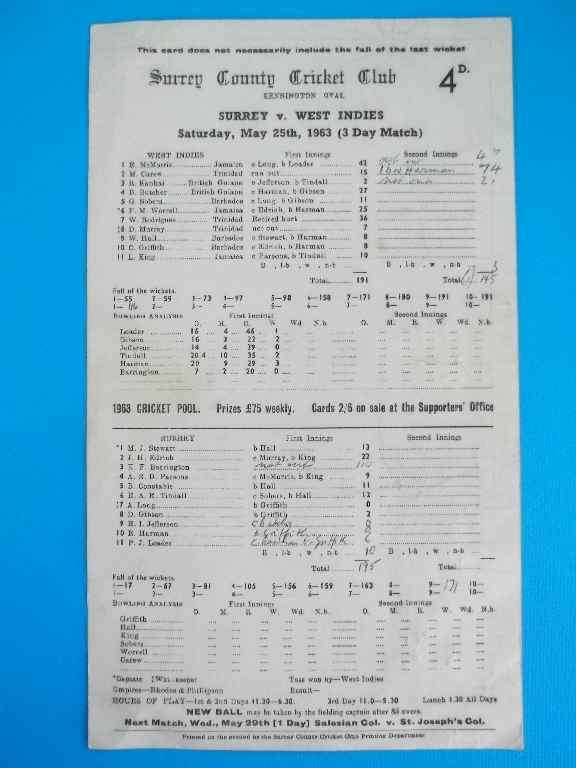 This card does not necessarily include the fall of the last wicket
Surrey County Cricket Club 4D.
KENNINGTON OVAL
SURREY v. WEST INDIES
Saturday, May 25th, 1963 (3 Day Match)
WEST INDIES First Innings Second Innings
1 E. McMorris Jamaica c Long, b Loader 42 not out 47
2 M. Carew Trinidad run out 15 lbw Harman 74
3 R. Kanhai British Guiana c Jefferson b Tindall 2 not out
4 B. Butcher British Guiana c Harman, b Gibson 27
5 G. Sobers Barbados c Long, b Gibson 11
*6 F. M. Worrell Jamaica c Edrich, b Harman 25
7 W. Rodrigues Trinidad Retired hurt 36
‡8 D. Murray Trinidad not out 7
9 W. Hall Barbados c Stewart, b Harman 8
10 C. Griffith Barbados c Edrich, b Harman 8
11 L. King Jamaica c Parsons, b Tindall 10
B , l-b , w , n-b B , l-b , w , n-b 3
Total 191 Total 145
Fall of the wickets.
1—55 2—59 3—73 4—97 5—98 6—158 7—171 8—180 9—191 10—191
1— 2— 3— 4— 5— 6— 7— 8— 9— 10—
BOWLING ANALYSIS First Innings Second Innings
O. M. R. W. Wd. N.b. O. M. R. W. Wd. N.b.
Loader 16 4 46 1
Gibson 16 3 22 2
Jefferson 14 4 39 0
Tindall 20.4 10 35 2
Harman 20 9 29 3
Barrington 7 2 20 0
1963 CRICKET POOL. Prizes £75 weekly. Cards 2/6 on sale at the Supporters' Office
SURREY First Innings Second Innings
*1 M. J. Stewart b Hall 13
2 J. H. Edrich c Murray, b King 22
3 K. F. Barrington not out 110
4 A. B. D. Parsons c McMorris, b King 9
5 B. Constable b Hall 11
6 R. A. E. Tindall c Sobers, b Hall 12
‡7 A. Long b Griffith 0
8 D. Gibson b Griffith 2
9 R. I. Jefferson 0
10 R. Harman b Griffith
11 P. J. Loader b Griffith
B , l-b , w , n-b 10 B , l-b , w , n-b
Total 195 Total
Fall of the wickets.
1—17 2—67 3—81 4—105 5—156 6—159 7—163 8— 9—171 10—
1— 2— 3— 4— 5— 6— 7— 8— 9— 10—
BOWLING ANALYSIS First Innings Second Innings
O. M. R. W. Wd. N.b. O. M. R. W. Wd. N.b.
Griffith
Hall
King
Sobers
Worrell
Carew
*Captain ‡Wkt.-keeper Toss won by—West Indies
Umpires—Rhodes & Phillipson Result—
HOURS OF PLAY—1st & 2nd Days 11.30—6.30. 3rd Day 11.0—5.30 Lunch 1.30 All Days
NEW BALL may be taken by the fielding captain after 85 overs.
Next Match, Wed., May 29th [1 Day] Salesian Col. v. St. Joseph's Col.
Printed on the ground by the Surrey County Cricket Club Printing Department